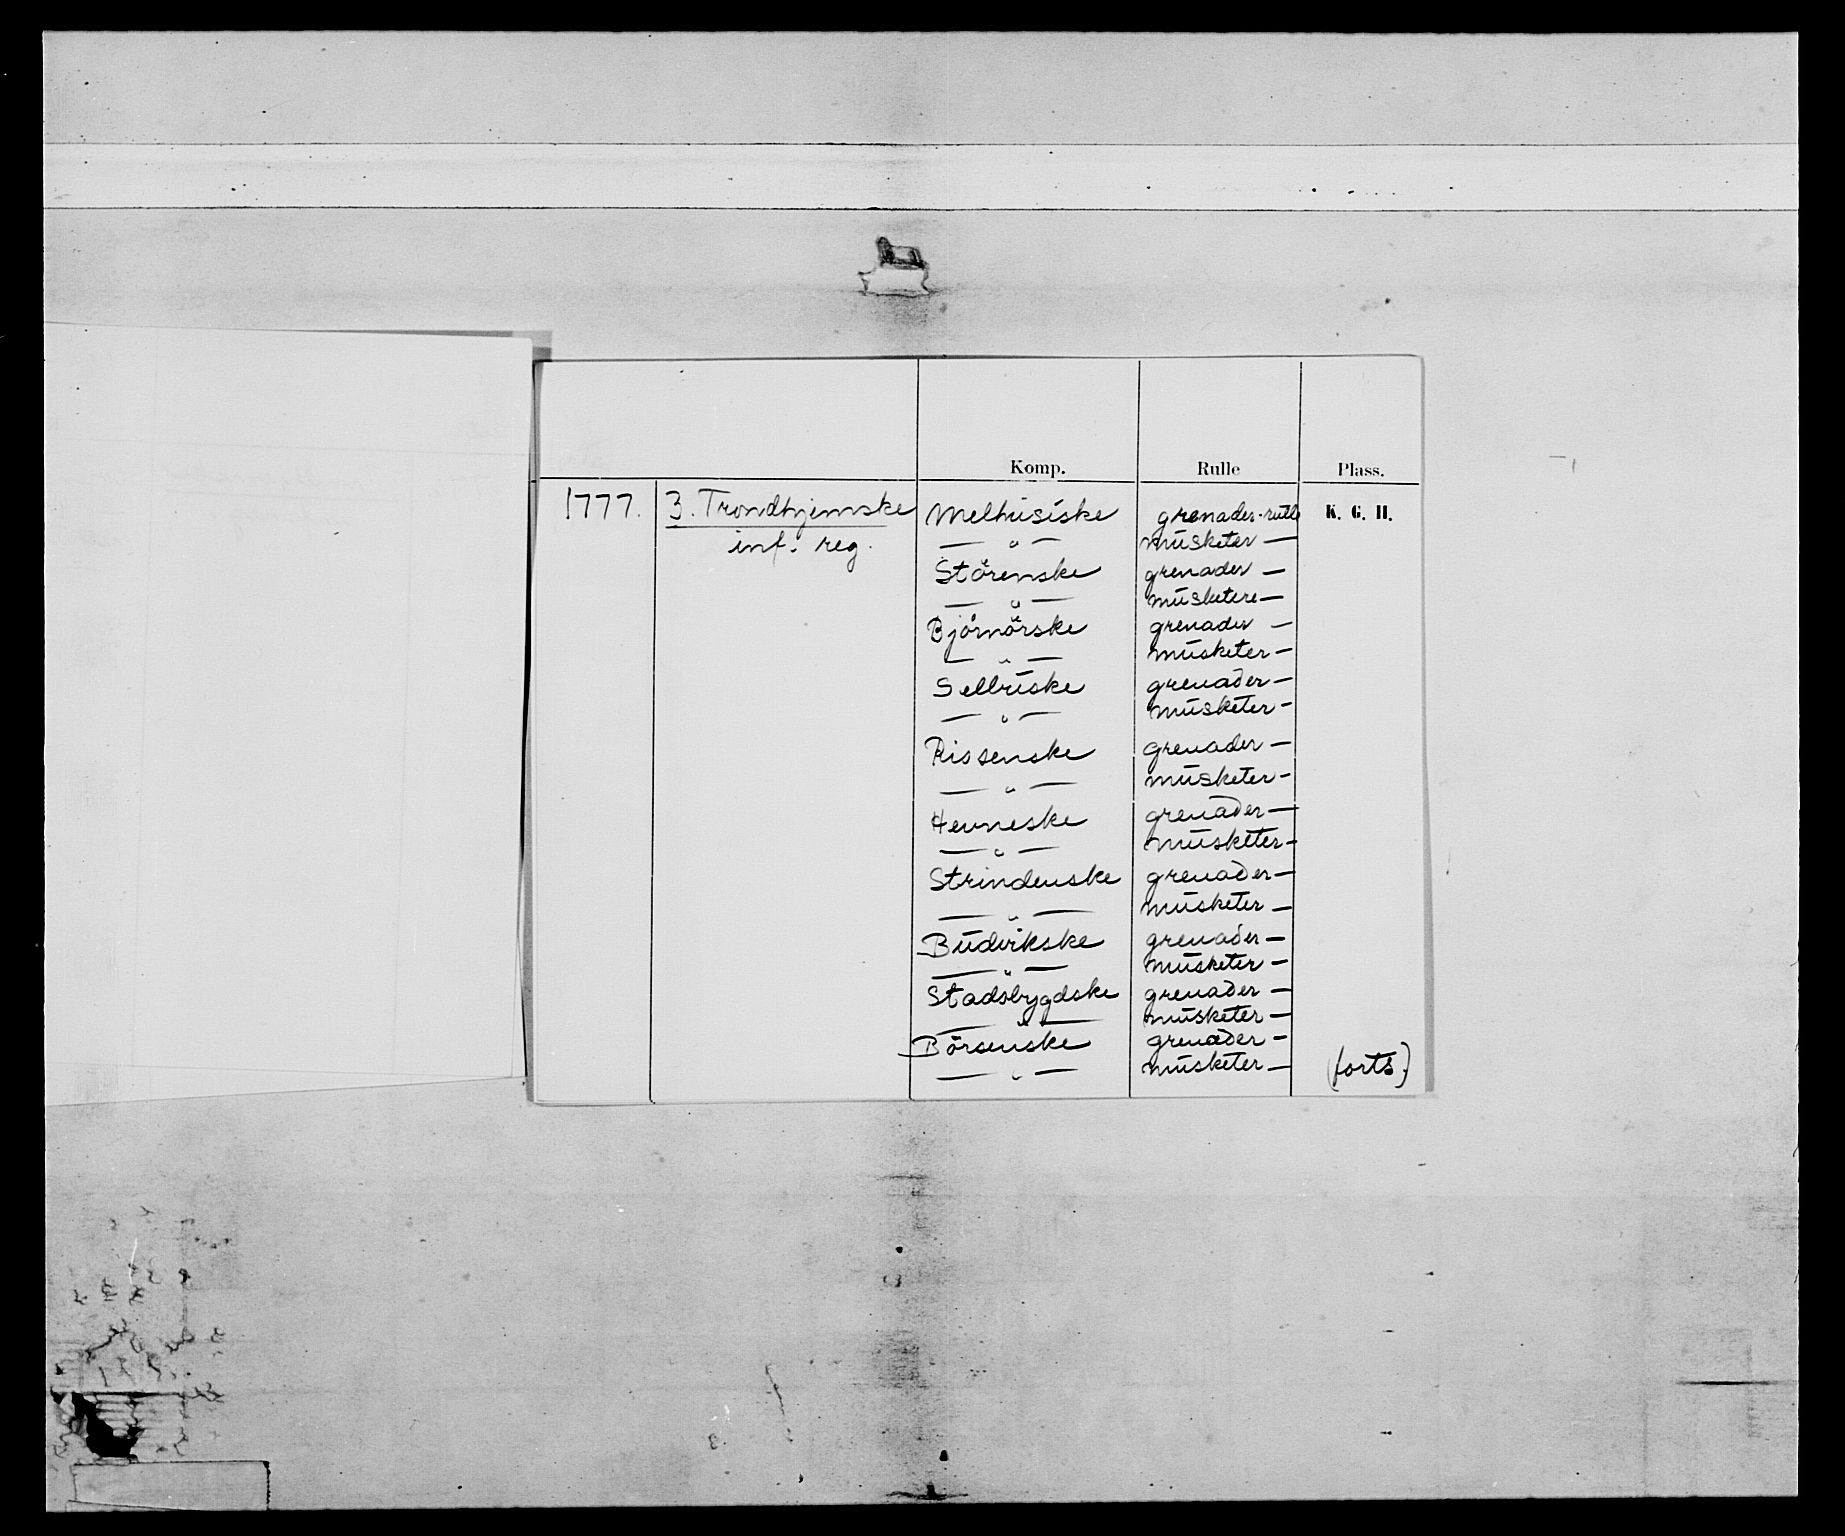 Komp. Rulle Plass.
1777. 3. Trondhjemske Melhusiske grenader-rulle K. G. H.
inf. reg. — " — musketer —
Störenske grenader —
— " — musketere —
Björnörske grenader —
— " — musketer —
Selbuske grenader —
— " — musketer —
Rissenske grenader —
— " — musketer —
Hevneske grenader —
— " — musketer —
Strindenske grenader —
— " — musketer —
Budvikske grenader —
— " — musketer —
Stadsbygdske grenader —
— " — musketer —
Börsenske grenader —
— " — musketer — (forts.)